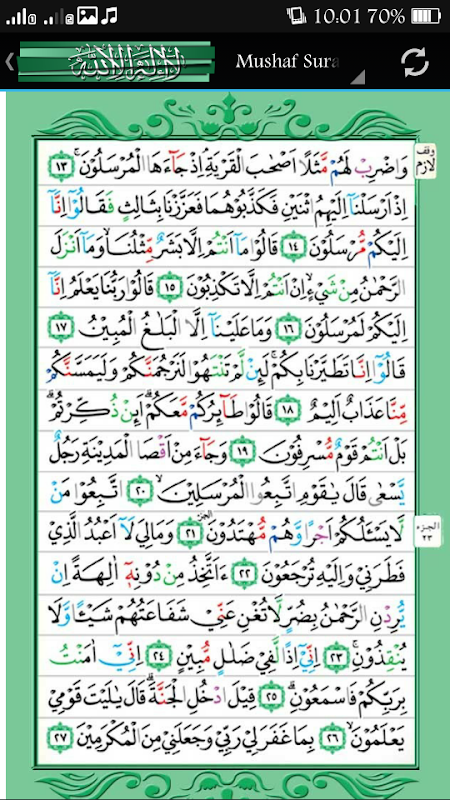 10.01 70%
لا إله إلا الله
Mushaf Sura
وقف لازم
وَاضْرِبْ لَهُمْ مَّثَلًا اَصْحٰبَ الْقَرْيَةِۘ اِذْ جَاۤءَهَا الْمُرْسَلُوْنَۚ ١٣
اِذْ اَرْسَلْنَآ اِلَيْهِمُ اثْنَيْنِ فَكَذَّبُوْهُمَا فَعَزَّزْنَا بِثَالِثٍ فَقَالُوْٓا اِنَّآ
اِلَيْكُمْ مُّرْسَلُوْنَ ١٤ قَالُوْا مَآ اَنْتُمْ اِلَّا بَشَرٌ مِّثْلُنَاۙ وَمَآ اَنْزَلَ
الرَّحْمٰنُ مِنْ شَيْءٍۙ اِنْ اَنْتُمْ اِلَّا تَكْذِبُوْنَ ١٥ قَالُوْا رَبُّنَا يَعْلَمُ اِنَّآ
اِلَيْكُمْ لَمُرْسَلُوْنَ ١٦ وَمَا عَلَيْنَآ اِلَّا الْبَلٰغُ الْمُبِيْنُ ١٧
قَالُوْٓا اِنَّا تَطَيَّرْنَا بِكُمْۚ لَىِٕنْ لَّمْ تَنْتَهُوْا لَنَرْجُمَنَّكُمْ وَلَيَمَسَّنَّكُمْ
مِّنَّا عَذَابٌ اَلِيْمٌ ١٨ قَالُوْا طَاۤىِٕرُكُمْ مَّعَكُمْۗ اَىِٕنْ ذُكِّرْتُمْۗ
بَلْ اَنْتُمْ قَوْمٌ مُّسْرِفُوْنَ ١٩ وَجَاۤءَ مِنْ اَقْصَا الْمَدِيْنَةِ رَجُلٌ
يَّسْعٰى قَالَ يٰقَوْمِ اتَّبِعُوا الْمُرْسَلِيْنَۙ ٢٠ اتَّبِعُوْا مَنْ
لَّا يَسْـَٔلُكُمْ اَجْرًا وَّهُمْ مُّهْتَدُوْنَ ۔ الجزء ٢١ وَمَا لِيَ لَآ اَعْبُدُ الَّذِيْ
الجزء ٢٣
فَطَرَنِيْ وَاِلَيْهِ تُرْجَعُوْنَ ٢٢ ءَاَتَّخِذُ مِنْ دُوْنِهٖٓ اٰلِهَةً اِنْ
يُّرِدْنِ الرَّحْمٰنُ بِضُرٍّ لَّا تُغْنِ عَنِّيْ شَفَاعَتُهُمْ شَيْـًٔا وَّلَا
يُنْقِذُوْنِۚ ٢٣ اِنِّيْٓ اِذًا لَّفِيْ ضَلٰلٍ مُّبِيْنٍ ٢٤ اِنِّيْٓ اٰمَنْتُ
بِرَبِّكُمْ فَاسْمَعُوْنِۗ ٢٥ قِيْلَ ادْخُلِ الْجَنَّةَۗ قَالَ يٰلَيْتَ قَوْمِيْ
يَعْلَمُوْنَۙ ٢٦ بِمَا غَفَرَ لِيْ رَبِّيْ وَجَعَلَنِيْ مِنَ الْمُكْرَمِيْنَ ٢٧